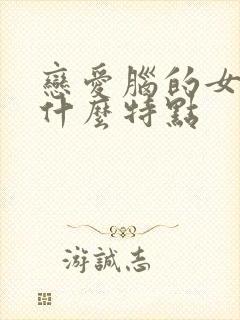 戀愛腦的女
什麼特點
游誠志